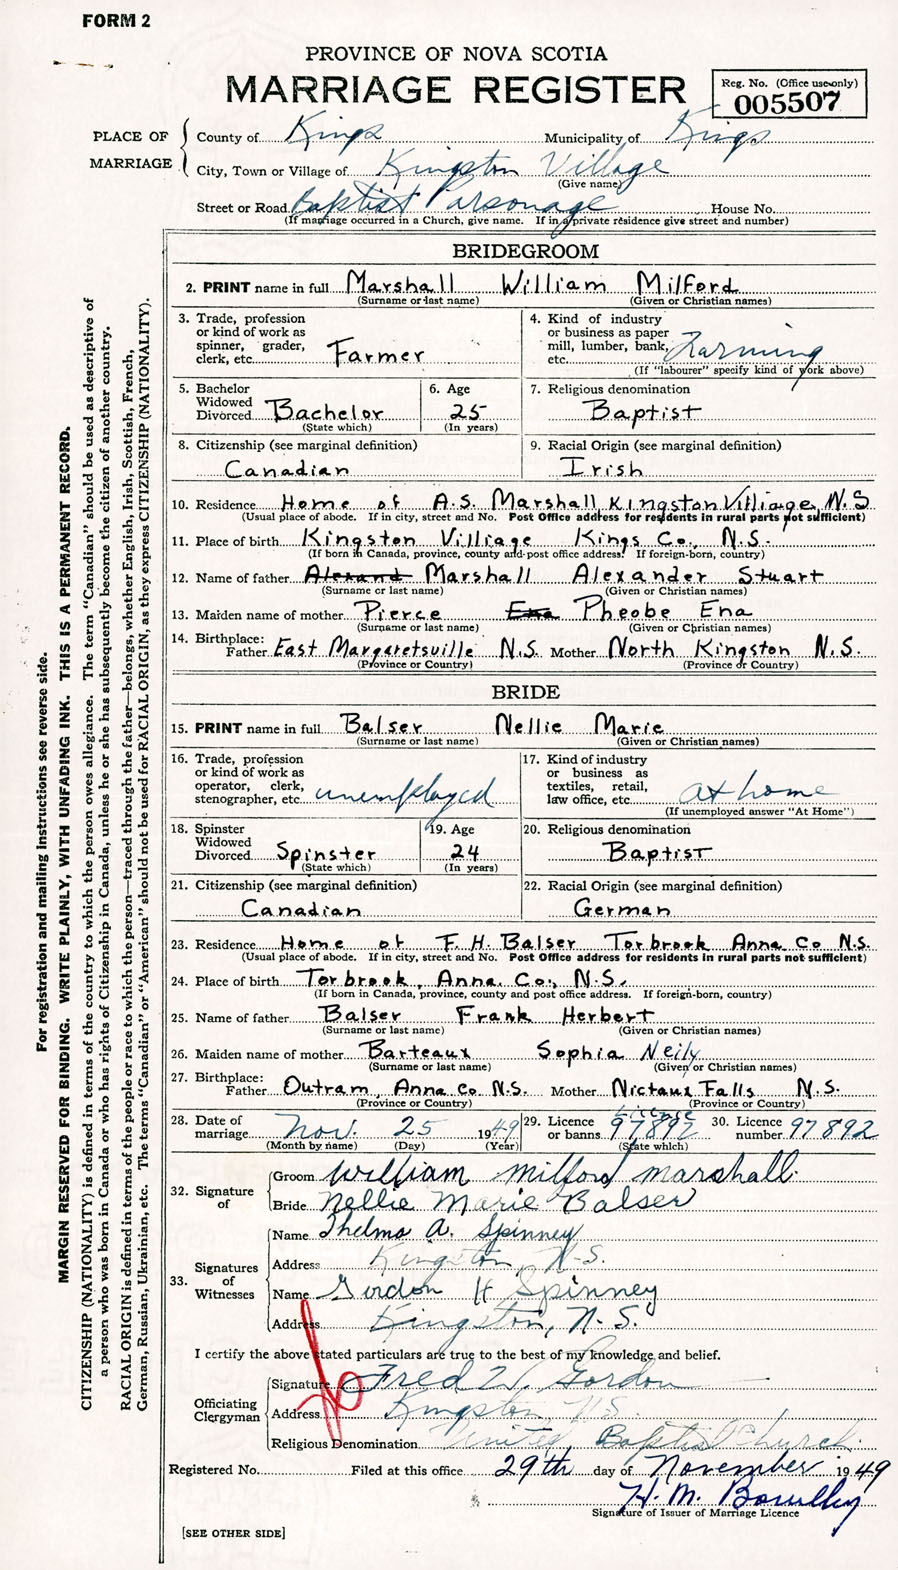 FORM 2
PROVINCE OF NOVA SCOTIA
MARRIAGE REGISTER
Reg. No. (Office use only)
005507
PLACE OF MARRIAGE
County of Kings Municipality of Kings
City, Town or Village of Kingston Village
(Give name)
Street or Road Baptist Parsonage House No.
(If marriage occurred in a Church, give name. If in a private residence give street and number)
BRIDEGROOM
2. PRINT name in full Marshall William Milford
(Surname or last name) (Given or Christian names)
3. Trade, profession
or kind of work as
spinner, grader,
clerk, etc. Farmer
4. Kind of industry
or business as paper
mill, lumber, bank,
etc. Farming
(If "labourer" specify kind of work above)
5. Bachelor
Widowed
Divorced Bachelor
(State which)
6. Age
25
(In years)
7. Religious denomination
Baptist
8. Citizenship (see marginal definition)
Canadian
9. Racial Origin (see marginal definition)
Irish
10. Residence Home of A.S. Marshall, Kingston Villiage, N.S
(Usual place of abode. If in city, street and No. Post Office address for residents in rural parts not sufficient)
11. Place of birth Kingston Villiage Kings Co., N.S.
(If born in Canada, province, county and post office address. If foreign-born, country)
12. Name of father Alexand Marshall Alexander Stuart
(Surname or last name) (Given or Christian names)
13. Maiden name of mother Pierce Ena Pheobe Ena
(Surname or last name) (Given or Christian names)
14. Birthplace:
Father East Margaretsville N.S. Mother North Kingston N.S.
(Province or Country) (Province or Country)
BRIDE
15. PRINT name in full Balser Nellie Marie
(Surname or last name) (Given or Christian names)
16. Trade, profession
or kind of work as
operator, clerk,
stenographer, etc unemployed
17. Kind of industry
or business as
textiles, retail,
law office, etc. at home
(If unemployed answer "At Home")
18. Spinster
Widowed
Divorced Spinster
(State which)
19. Age
24
(In years)
20. Religious denomination
Baptist
21. Citizenship (see marginal definition)
Canadian
22. Racial Origin (see marginal definition)
German
23. Residence Home of F. H. Balser Torbrook Anna Co N.S.
(Usual place of abode. If in city, street and No. Post Office address for residents in rural parts not sufficient)
24. Place of birth Torbrook, Anna. Co., N.S.
(If born in Canada, province, county and post office address. If foreign-born, country)
25. Name of father Balser Frank Herbert
(Surname or last name) (Given or Christian names)
26. Maiden name of mother Barteaux Sophia Neily
(Surname or last name) (Given or Christian names)
27. Birthplace:
Father Outram, Anna Co N.S. Mother Nictaux Falls N.S.
(Province or Country) (Province or Country)
28. Date of
marriage Nov. 25 1949
(Month by name) (Day) (Year)
29. Licence
or banns License 97892
(State which)
30. Licence
number 97892
32. Signature of
Groom William Milford Marshall
Bride Nellie Marie Balser
33. Signatures of Witnesses
Name Thelma A. Spinney
Address Kingston, N.S.
Name Gordon H Spinney
Address Kingston, N.S.
I certify the above stated particulars are true to the best of my knowledge and belief.
Officiating Clergyman
Signature Fred W. Gordon
Address Kingston, N.S.
Religious Denomination United Baptist Church
Registered No. Filed at this office 29th day of November 1949
H. M.
Signature of Issuer of Marriage Licence
[SEE OTHER SIDE]
For registration and mailing instructions see reverse side.
MARGIN RESERVED FOR BINDING. WRITE PLAINLY, WITH UNFADING INK. THIS IS A PERMANENT RECORD.
CITIZENSHIP (NATIONALITY) is defined in terms of the country to which the person owes allegiance. The term "Canadian" should be used as descriptive of
a person who was born in Canada or who has rights of Citizenship in Canada, unless he or she has subsequently become the citizen of another country.
RACIAL ORIGIN is defined in terms of the people or race to which the person—traced through the father—belongs, whether English, Irish, Scottish, French,
German, Russian, Ukrainian, etc. The terms "Canadian" or "American" should not be used for RACIAL ORIGIN, as they express CITIZENSHIP (NATIONALITY).